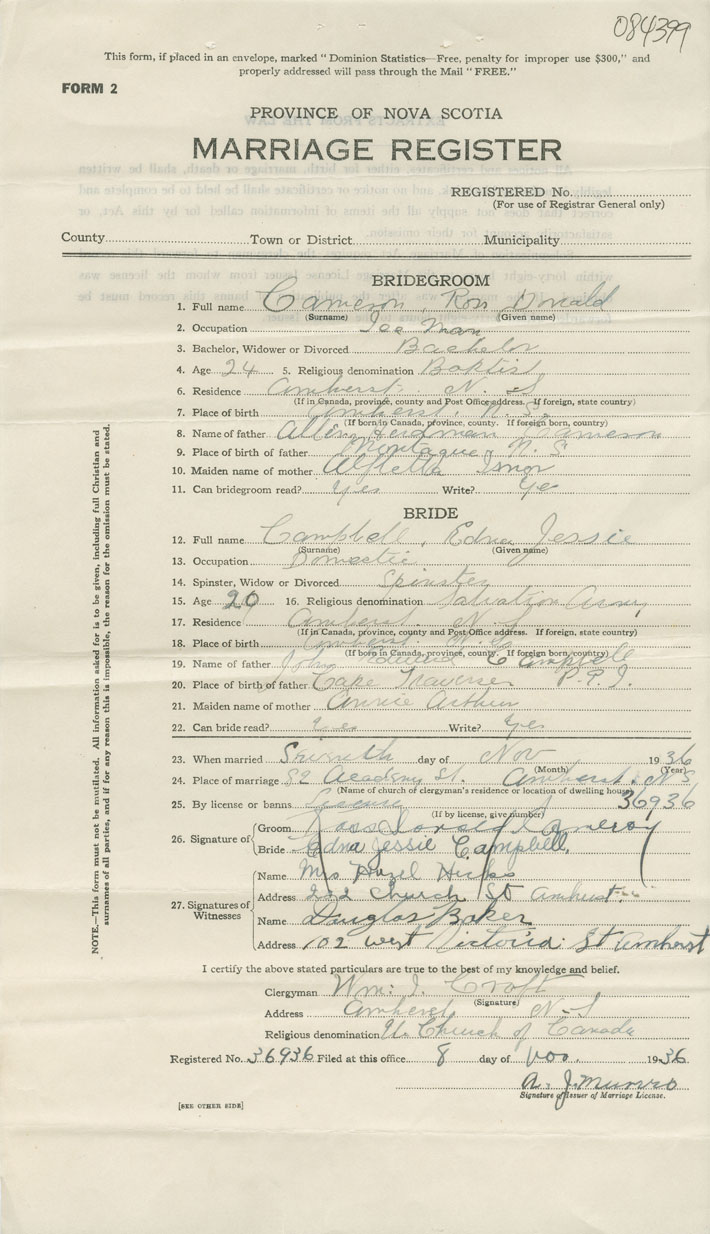 084399
This form, if placed in an envelope, marked "Dominion Statistics—Free, penalty for improper use $300," and
properly addressed will pass through the Mail "FREE."
FORM 2
PROVINCE OF NOVA SCOTIA
MARRIAGE REGISTER
REGISTERED No.
(For use of Registrar General only)
County Town or District Municipality
BRIDEGROOM
1. Full name Cameron, Ross Donald
(Surname) (Given name)
2. Occupation Ice Man
3. Bachelor, Widower or Divorced Bachelor
4. Age 24 5. Religious denomination Baptist
6. Residence Amherst N. S
(If in Canada, province, county and Post Office address. If foreign, state country)
7. Place of birth Amherst, N. S.
(If born in Canada, province, county. If foreign born, country)
8. Name of father Allen Cameron
9. Place of birth of father Montague, N. S
10. Maiden name of mother
11. Can bridegroom read? Yes Write? Ye
BRIDE
12. Full name Campbell, Edna Jessie
(Surname) (Given name)
13. Occupation Domestic
14. Spinster, Widow or Divorced Spinster
15. Age 20 16. Religious denomination Salvation Army
17. Residence Amherst N. S
(If in Canada, province, county and Post Office address. If foreign, state country)
18. Place of birth Amherst N. S
(If born in Canada, province, county. If foreign born, country)
19. Name of father John Edward Campbell
20. Place of father's birth of father Cape Traverse P. E. I.
21. Maiden name of mother Annie Arthur
22. Can bride read? Yes Write? Yes
23. When married Seventh day of Nov 1936
(Month) (Year)
24. Place of marriage 82 Academy St. Amherst. N S
(Name of church of clergyman's residence or location of dwelling house)
25. By license or banns License 36936
(If by license, give number)
26. Signature of Groom Ross Donald Cameron
Bride Edna Jessie Campbell.
27. Signatures of Witnesses Name Mrs Hazel Hicks
Address 222 Church St Amherst
Name Douglas Baker
Address 102 West Victoria St Amherst
I certify the above stated particulars are true to the best of my knowledge and belief.
Clergyman Wm. J. Croft
(Signature)
Address Amherst N-S
Religious denomination U. Church of Canada
Registered No. 36936 Filed at this office 8 day of Nov. 1936
A. J. Munro
Signature of Issuer of Marriage License.
[SEE OTHER SIDE]
NOTE.—This form must not be mutilated. All information asked for is to be given, including full Christian and
surnames of all parties, and if for any reason this is impossible, the reason for the omission must be stated.